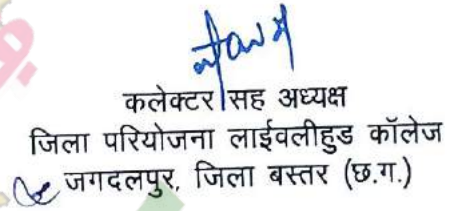 कलेक्टर सह अध्यक्ष
जिला परियोजना लाईवलीहुड कॉलेज
जगदलपुर, जिला बस्तर (छ.ग.)